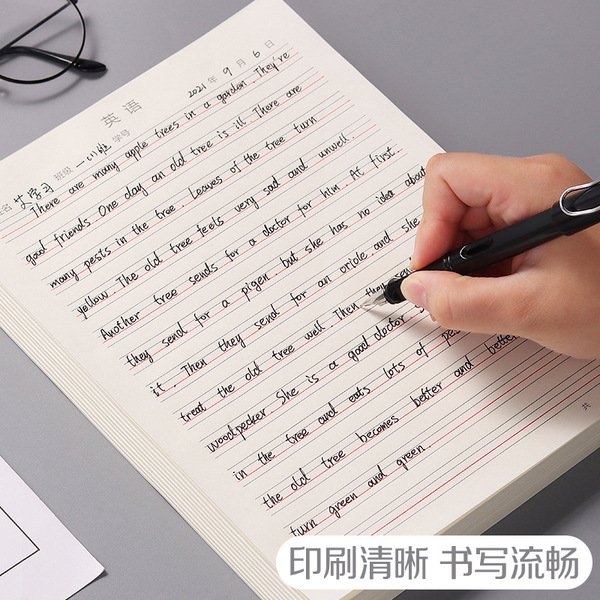 英语
姓名 艾学习 班级 一(1)班 学号 2021年9月6日
There are many apple trees in a garden. They're
good friends. One day an old tree is ill. There are
many pests in the tree. Leaves of the tree turn
yellow. The old tree feels very sad and unwell.
Another tree sends for a doctor for him. At first,
they send for a pigen, but she has no idea about
it. Then they send for an oriole, and she
treat the old tree well. Then they sen
woodpecker. She is a good doctor
in the tree and eats lots of pes
the old tree becomes better and bette
turn green and green.
共
印刷清晰 书写流畅